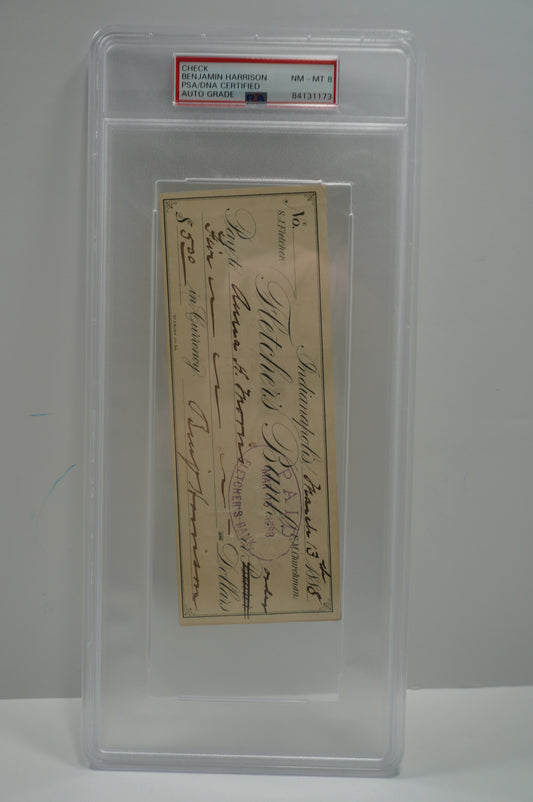 CHECK
BENJAMIN HARRISON NM-MT 8
PSA/DNA CERTIFIED
AUTO GRADE 84131173
No. Indianapolis, March 13 1888
S.J. Fletcher. F.M. Churchman.
Fletcher's Bank.
PAID
MAR
FLETCHER'S BANK
Pay to Anna or Bearer order
Five Dollars
$ 5.00 in Currency. Benj Harrison